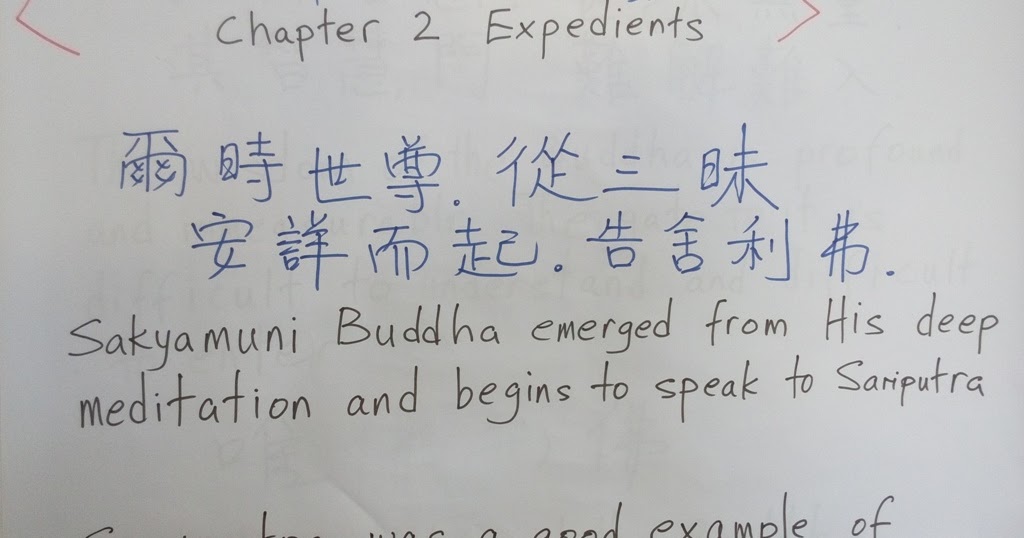 Chapter 2 Expedients
爾時世尊.從三昧
安詳而起.告舍利弗.
Sakyamuni Buddha emerged from His deep
meditation and begins to speak to Sariputra
was a good example of